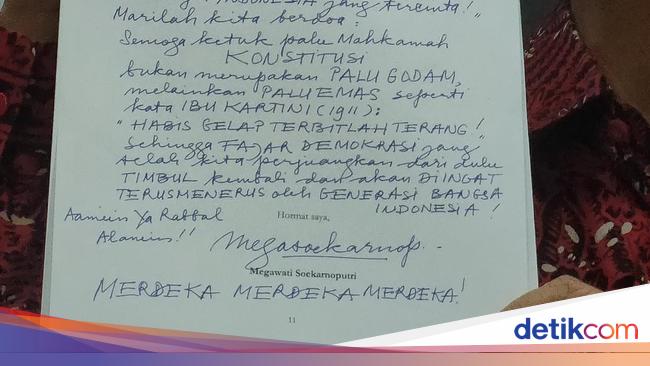 INDONESIA yang tercinta!"
Marilah kita berdoa:
Semoga ketuk palu Mahkamah
KONSTITUSI
bukan merupakan PALU GODAM,
melainkan PALU EMAS seperti
kata IBU KARTINI (1911):
"HABIS GELAP TERBITLAH TERANG!"
Sehingga FAJAR DEMOKRASI yang
telah kita perjuangkan dari dulu
TIMBUL kembali dan akan DIINGAT
TERUS MENERUS oleh GENERASI BANGSA
INDONESIA!
Aamiin Ya Rabbal
Alamin!!
Hormat saya,
Megawati Soekarnoputri
MERDEKA MERDEKA MERDEKA!
11
detikcom